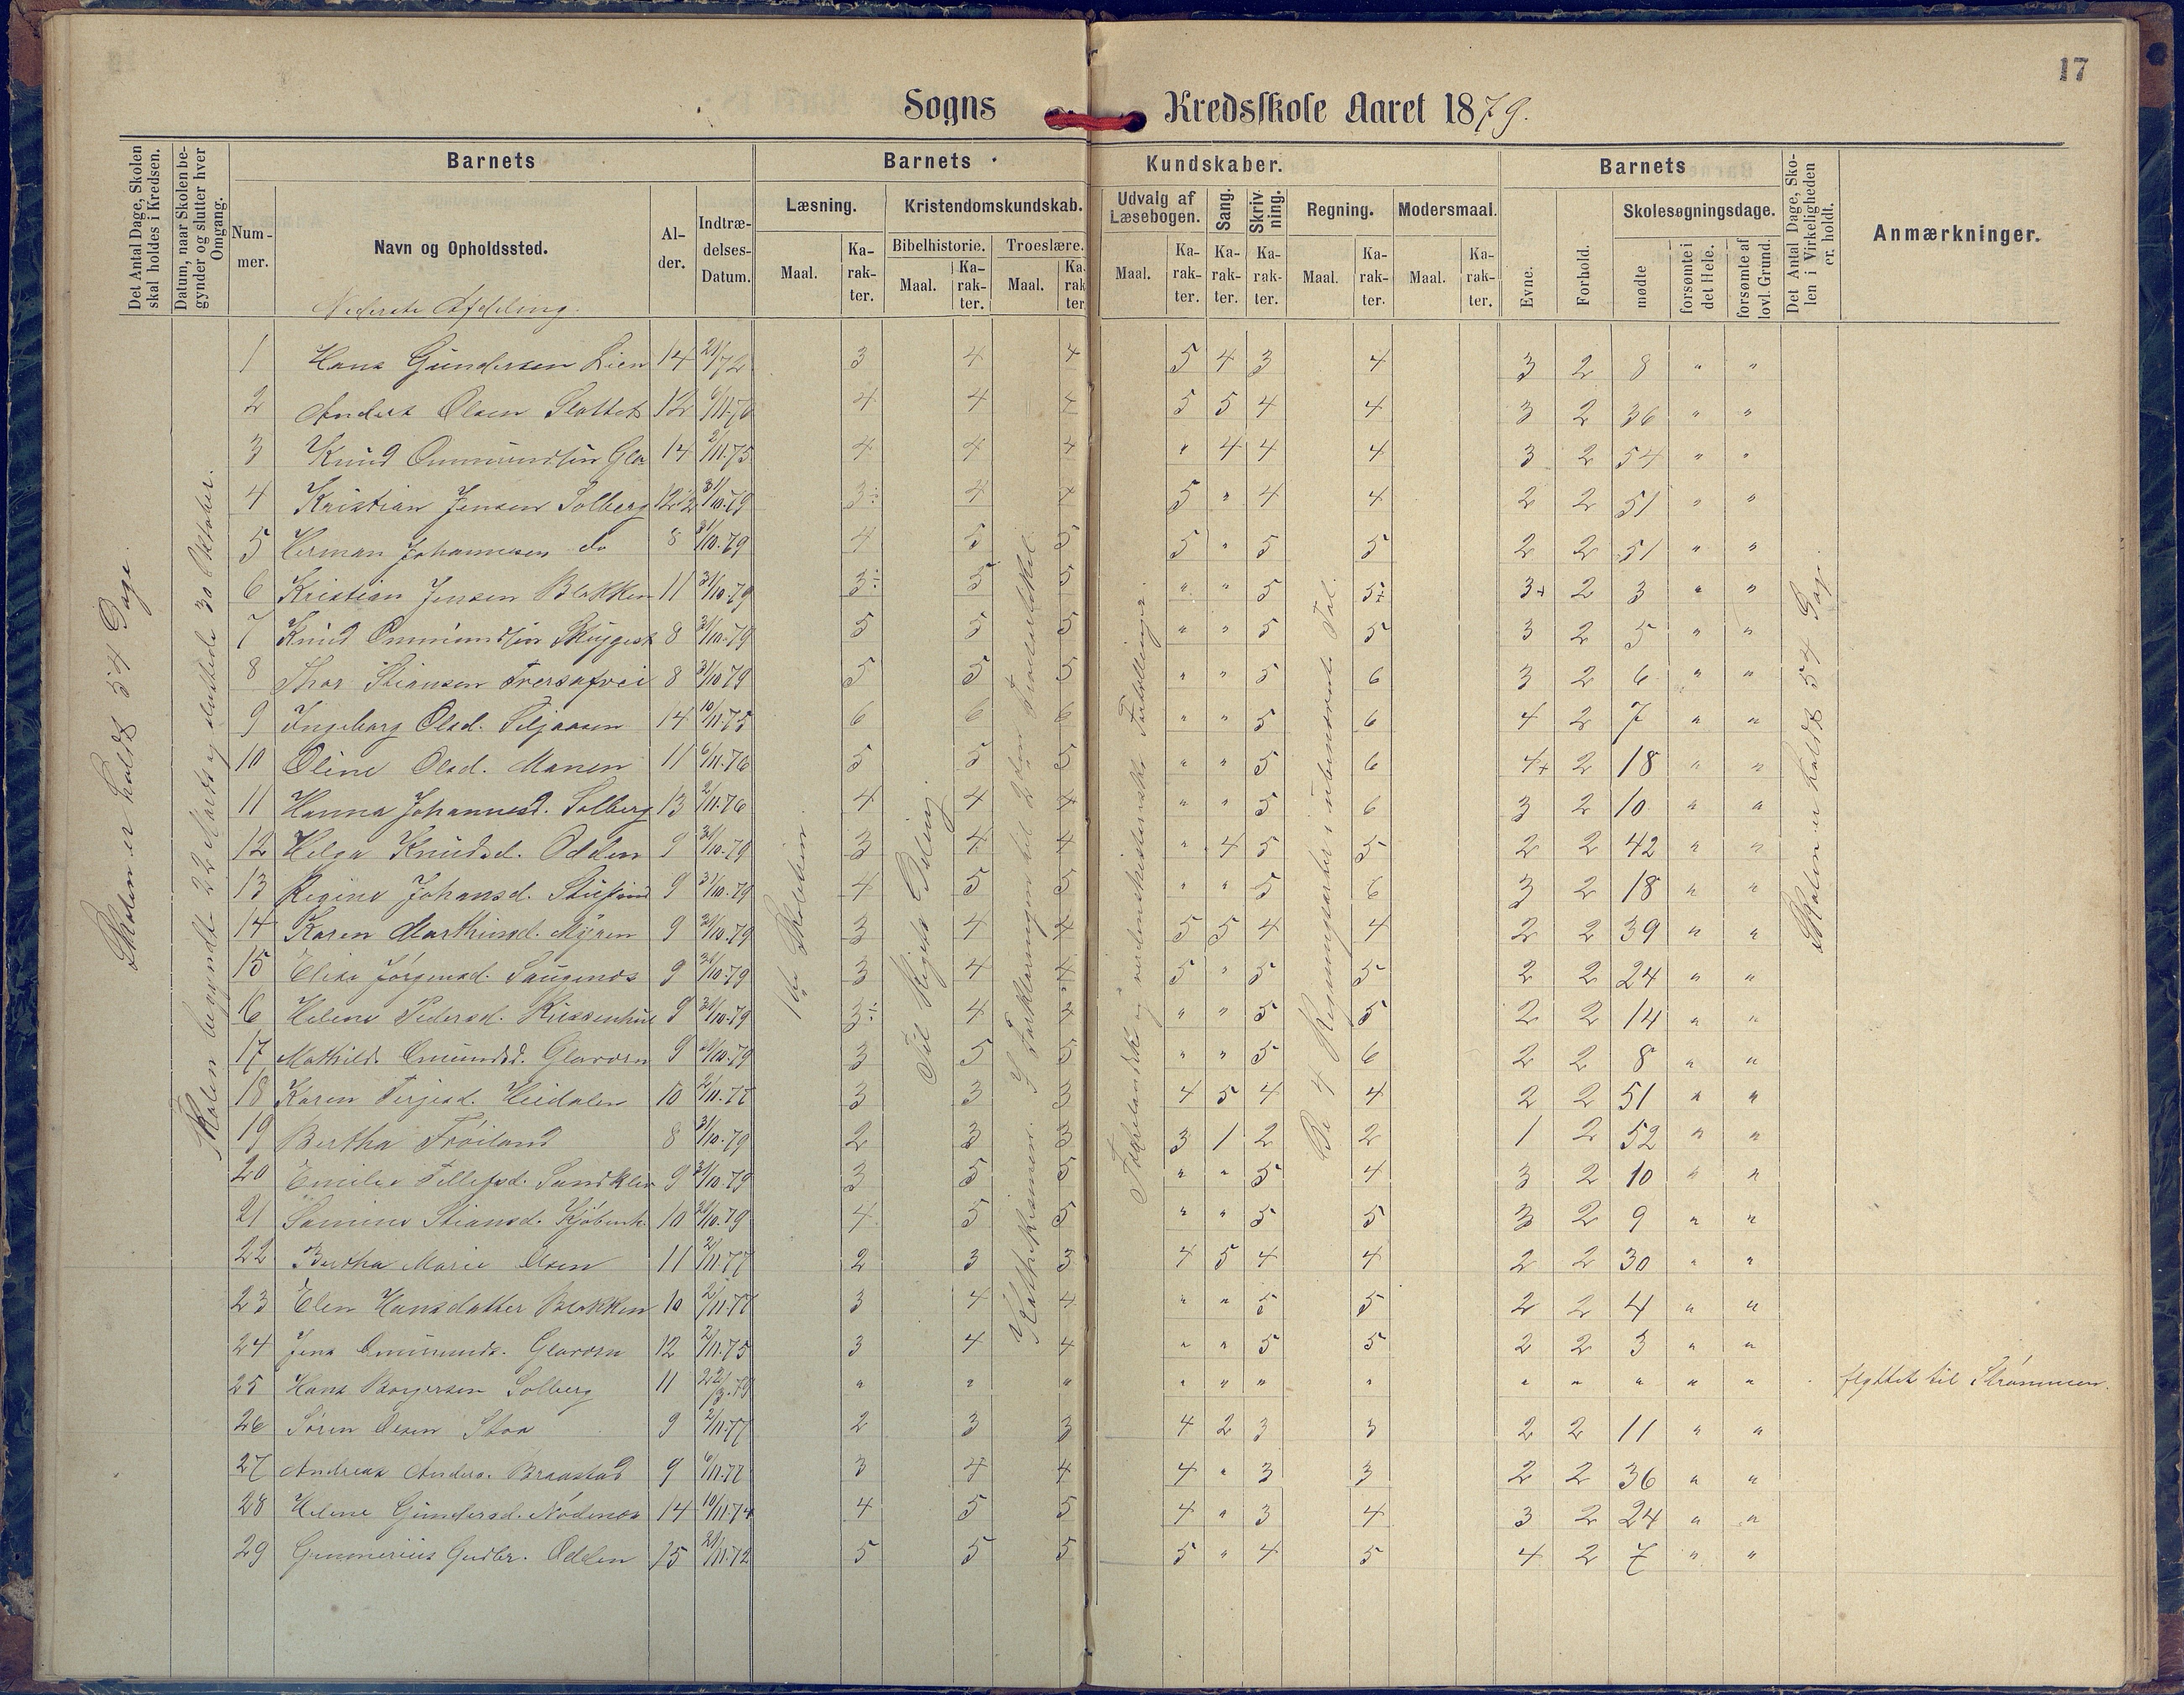 17
Sogns Kredsskole Aaret 1879.
Det Antal Dage, Skolen skal holdes i Kredsen.
Datum, naar Skolen begynder og slutter hver Omgang.
Barnets
Barnets Kundskaber.
Barnets
Det Antal Dage, Skolen i Virkeligheden er holdt.
Anmærkninger.
Nummer.
Navn og Opholdssted.
Alder.
Indtrædelses-Datum.
Læsning.
Kristendomskundskab.
Udvalg af Læsebogen.
Sang.
Skrivning.
Regning.
Modersmaal.
Evne.
Forhold.
Skolesøgningsdage.
Bibelhistorie.
Troeslære.
Maal. Karakter. Maal. Karakter. Maal. Karakter. Maal. Karakter. Karakter. Karakter. Maal. Karakter. Maal. Karakter.
mødte
forsømte i det Hele.
forsømte af lovl. Grund.
Nederste Afdeling.
Skolen er holdt 54 Dage.
Skolen begyndt 22 Marts og sluttede 30 Oktober.
1ste Skoletrin.
Til Rigets Deling
Kathekismen. I Forklaringen til 2den Troesartikel.
Fædrelandske og verdenshistoriske Fortællinger.
De 4 Regningsarter i ubenævnte Tal.
Skolen er holdt 54 Dage.
1 Hans Gundersen Lien 14 21/72 3 4 4 5 4 3 4 3 2 8 " "
2 Anders Olsen Slottet 12 6/11.76 4 4 4 5 5 4 4 3 2 36 " "
3 Knud Ommundsen Gla 14 2/11.75 4 4 4 " 4 4 4 3 2 54 " "
4 Kristian Jensen Solberg 12 1/2 31/10.79 3÷ 4 4 5 " 4 4 2 2 51 " "
5 Herman Johannesen do 8 31/10.79 4 5 5 5 " 5 5 2 2 51 " "
6 Kristian Jensen Blakken 11 31/10.79 3÷ 5 5 " " 5 5÷ 3+ 2 3 " "
7 Knud Ommundsen Skuggest 8 31/10.79 5 5 5 " " 5 5 3 2 5 " "
8 Thor Stiansen Tversafvei 8 31/10.79 5 5 5 " " 5 6 3 2 6 " "
9 Ingeborg Olsd. Siljaasen 14 10/11.75 6 6 6 " " 5 6 4 2 7 " "
10 Oline Olsd. Manen 11 6/11.76 5 5 5 " " 5 6 4+ 2 18 " "
11 Hanna Johannesd. Solberg 13 2/11.76 4 4 4 " " 5 6 3 2 10 " "
12 Helga Knudsd. Odden 9 31/10.79 3 4 4 " 4 5 5 2 2 42 " "
13 Regine Johansd. 9 31/10.79 4 5 5 " " 5 6 3 2 18 " "
14 Karen Marthinsd. Myren 9 31/10.79 3 4 4 5 5 4 4 2 2 39 " "
15 Elise Jørgensd. Saugenes 9 31/10.79 3 4 4 5 " 5 5 2 2 24 " "
16 Helene Pedersd. 9 31/10.79 3÷ 4 4 " " 5 5 2 2 14 " "
17 Mathilde Omundsd. Glavoren 9 31/10.79 3 5 5 " " 5 6 2 2 8 " "
18 Karen Terjesd. Heidalen 10 2/11.77 3 3 3 4 5 4 4 2 2 51 " "
19 Bertha Frøiland 8 31/10.79 2 3 3 3 1 2 2 1 2 52 " "
20 Emilie Tellefsd. Sandklev 9 31/10.79 3 5 5 " " 5 4 3 2 10 " "
21 Samine Stiansd. Kjøbenh. 10 31/10.79 4 5 5 " " 5 5 3 2 9 " "
22 Bertha Marie Olsen 11 2/11.77 2 3 3 4 5 4 4 2 2 30 " "
23 Elen Hansdatter Blakken 10 2/11.77 3 4 4 " " 5 5 2 2 4 " "
24 Jens Omunds. Glavoren 12 2/11.75 3 4 4 " " 5 5 2 2 3 " "
25 Hans Borgersen Solberg 11 22/3.79 " " " " " " " " " " " " flyttet til Strømmen.
26 Søren Olsen Stoa 9 2/11.77 2 3 3 4 2 3 3 2 2 11 " "
27 Andreas Anders. Braastad 9 6/11.77 3 4 4 4 " 3 3 2 2 36 " "
28 Helene Gundersd. Nødenes 14 10/11.74 4 5 5 4 " 3 4 3 2 24 " "
29 Gunnerius Gudbr. Odden 15 21/11.72 5 5 5 5 " 4 5 4 2 7 " "